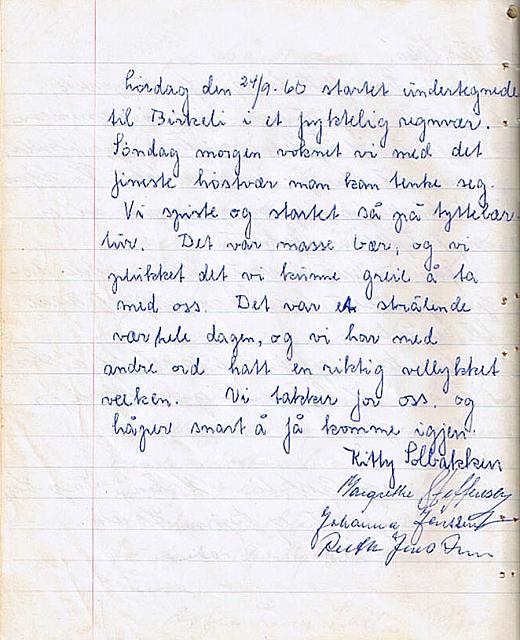 Lørdag den 24/9-60 startet undertegnede
til Birkeli i et fryktelig regnvær.
Søndag morgen voknet vi med det
fineste høstvær man kan tenke seg.
Vi spiste og startet så på tyttebær
tur. Det var masse bær, og vi
plukket det vi kunne greie å ta
med oss. Det var et strålende
vær hele dagen, og vi har med
andre ord hatt en riktig vellykket
veeken. Vi takker for oss, og
håper snart å få komme igjen.
Kitty Solbakken
Margrethe
Johanna Jenssen
Ruth